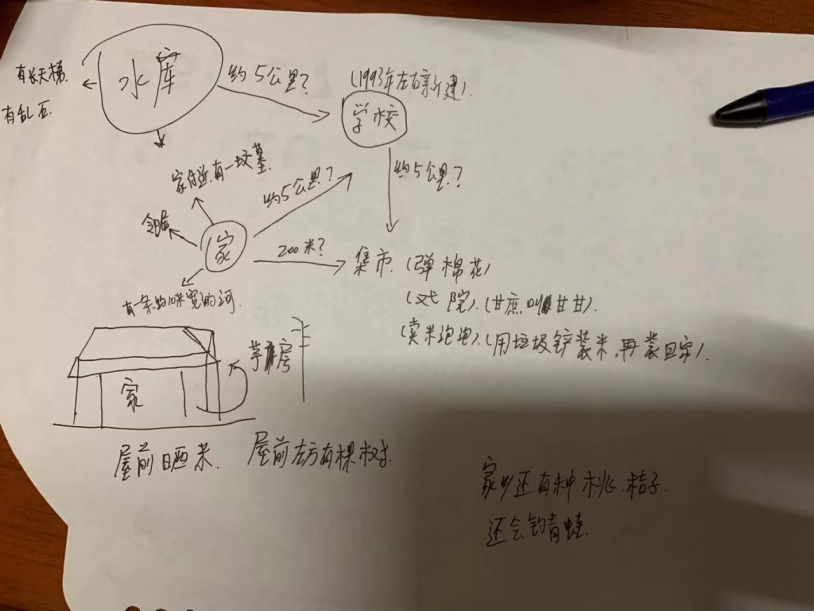 水库
有长天梯
有乱石
约5公里?
(1993年左右新建).
学校
约5公里?
家附近有一坟墓.
约5公里?
家
200米?
集市. (弹棉花)
(戏院). (甘庶叫甘甘).
(卖米泡泡). (用垃圾铲装米,再装回家).
有一条约10米宽的河.
茅房
家
屋前晒米. 屋前左方有棵树.
家乡还有种桃.桔子.
还会钓青蛙.